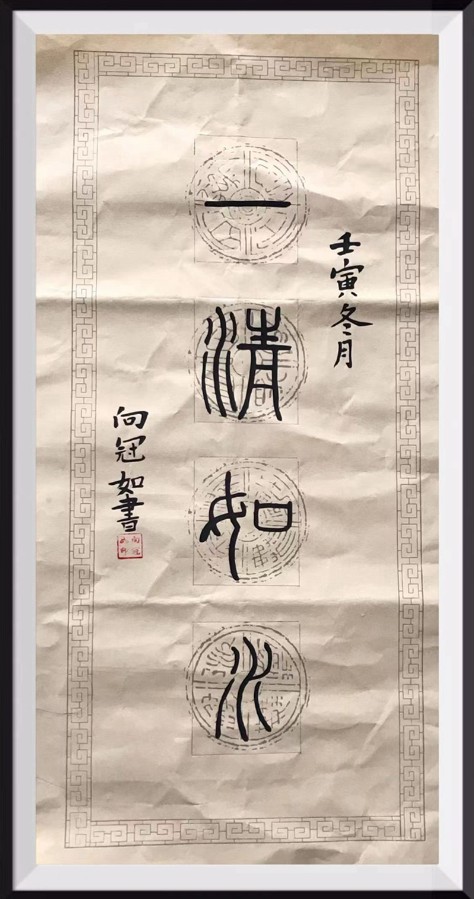 壬寅冬月
一清如水
向冠如書